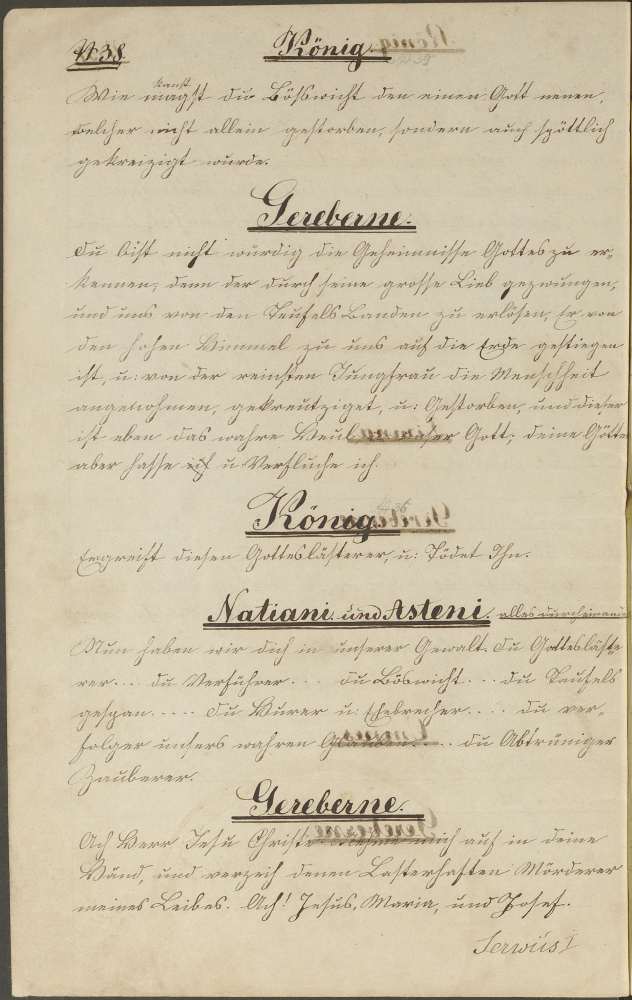 No 38.
König.
kanst
Wie magst du Böswicht den einen Gott nenen,
welcher nicht allein gestorben, sondern auch spöttlich
gekreizigt wurde.
Gereberne.
Du bist nicht würdig die Geheimnisse Gottes zu er-
kennen, denn der durch seine grosse Lieb gezwungen,
und uns von den Teufels Banden zu erlösen, Er von
den hohen Himmel zu uns auf die Erde gestiegen
ist, u: von der reinsten Jungfrau die Menschheit
angenohmen, gekreutziget, u: Gestorben, und dieser
ist eben das wahre Gott; deine Götter
aber hasse ich u Verfluche ich.
König.
Ergreift diesen Gotteslästerer, u: Tödet Ihn.
Natiani und Asteni. alles durcheinand
Nun haben wir dich in unserer Gewalt. Du Gottesläste
rer... du Verführer... du Böswicht... du Teufels
gespan.... du Hurer u: Ehebrecher.... du ver-
folger unsers wahren Glauben.... du Abtrüniger
Zauberer.
Gereberne.
Ach Herr Jesu Christe nehme mich auf in deine
Händ, und verzeih denen Lasterhaften Mörderer
meines Leibes. Ach! Jesus, Maria, und Josef.
Serwüs I